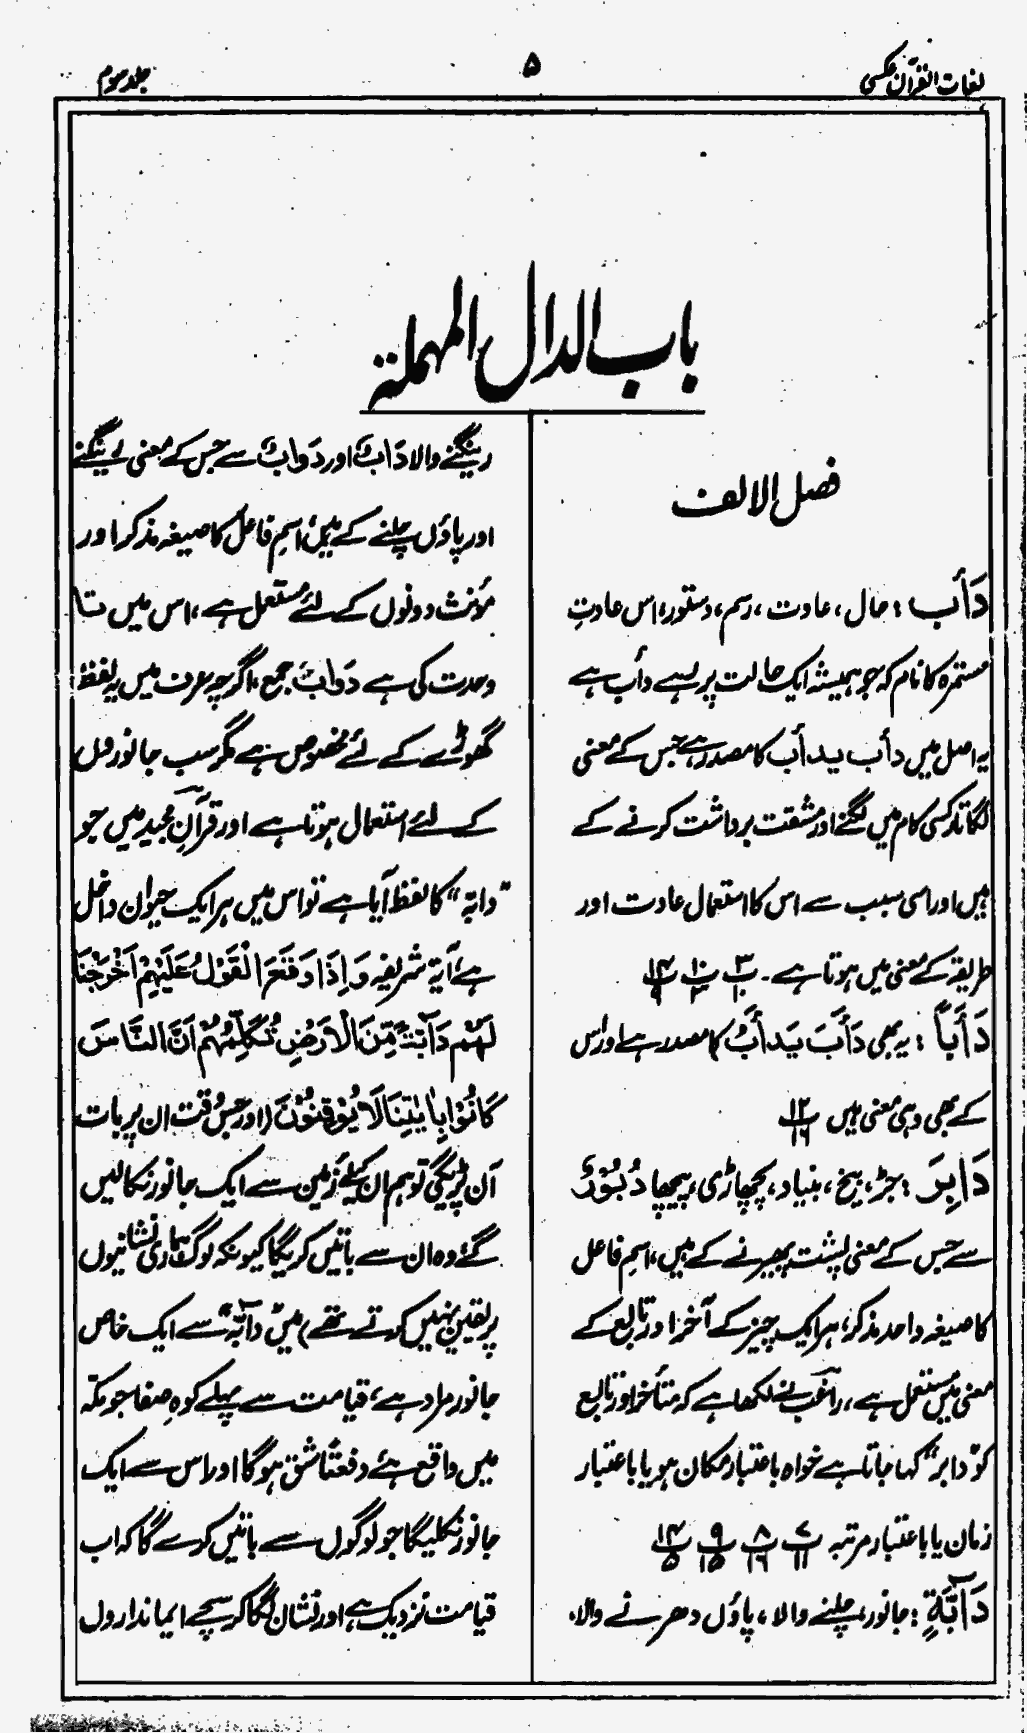 لغات القرآن عکسی
۵
جلد سوم
باب الدال المہملۃ
فصل الالف
دَأْب : حال، عادت، رسم، دستور، اس عادتِ
مستمرہ کا نام کہ جو ہمیشہ ایک حالت پر رہے دأب ہے
یہ اصل میں دأب یدأب کا مصدر ہے جس کے معنی
لگاتار کسی کام میں لگنے اور مشقت برداشت کرنے کے
ہیں اور اسی سبب سے اس کا استعمال عادت اور
طریقہ کے معنی میں ہوتا ہے۔ پ۳ ۱۰ پ۱۰ ۳ پ۲۴ ۹
دَأَبًا : یہ بھی دَأَبَ یَدأَبُ کا مصدر ہے اور اس
کے بھی وہی معنی ہیں پ۱۲ ۱۶
دَابِرَ : جڑ، بیخ، بنیاد، پچھاڑی، پیچھا دُبُوْرٌ
سے جس کے معنی پشت پھیرنے کے ہیں، اسمِ فاعل
کا صیغہ واحد مذکر، ہر ایک چیز کے آخر اور تابع کے
معنی میں مستعمل ہے، راغب نے لکھا ہے کہ متأخر اور تابع
کو "دابر" کہا جاتا ہے خواہ باعتبار مکان ہو یا باعتبار
زمان یا باعتبار مرتبہ پ۷ ۱۱ پ۸ ۱۶ پ۹ ۱۵ پ۱۴ ۵
دَآبَّةٍ : جانور، چلنے والا، پاؤں دھرنے والا،
رینگنے والا دَابٌّ اور دَوَابٌّ سے جس کے معنی رینگنے
اور پاؤں چلنے کے ہیں، اسمِ فاعل کا صیغہ مذکر اور
مؤنث دونوں کے لئے مستعمل ہے، اس میں تا
وحدت کی ہے دَوَابّ جمع، اگرچہ عرف میں یہ لفظ
گھوڑے کے لئے مخصوص ہے مگر سب جانوروں
کے لئے استعمال ہوتا ہے اور قرآنِ مجید میں جو
"دابہ" کا لفظ آیا ہے تو اس میں ہر ایک حیوان داخل
ہے، آیۃ شریفہ وَاِذَا وَقَعَ الْقَوْلُ عَلَيْهِمْ اَخْرَجْنَا
لَهُمْ دَآبَّةً مِّنَ الْاَرْضِ تُكَلِّمُهُمْ اَنَّ النَّاسَ
كَانُوْا بِاٰيٰتِنَا لَا يُوْقِنُوْنَ (اور جس وقت ان پر بات
آن پڑیگی تو ہم ان کیلئے زمین سے ایک جانور نکالیں
گے وہ ان سے باتیں کریگا کیونکہ لوگ ہماری نشانیوں
پر یقین نہیں کرتے تھے) میں "دآبّہ" سے ایک خاص
جانور مراد ہے، قیامت سے پہلے کوہِ صفا جو مکّہ
میں واقع ہے دفعتًا شق ہوگا اور اس سے ایک
جانور نکلیگا جو لوگوں سے باتیں کرے گا کہ اب
قیامت نزدیک ہے اور نشان لگا کر سچے ایمانداروں